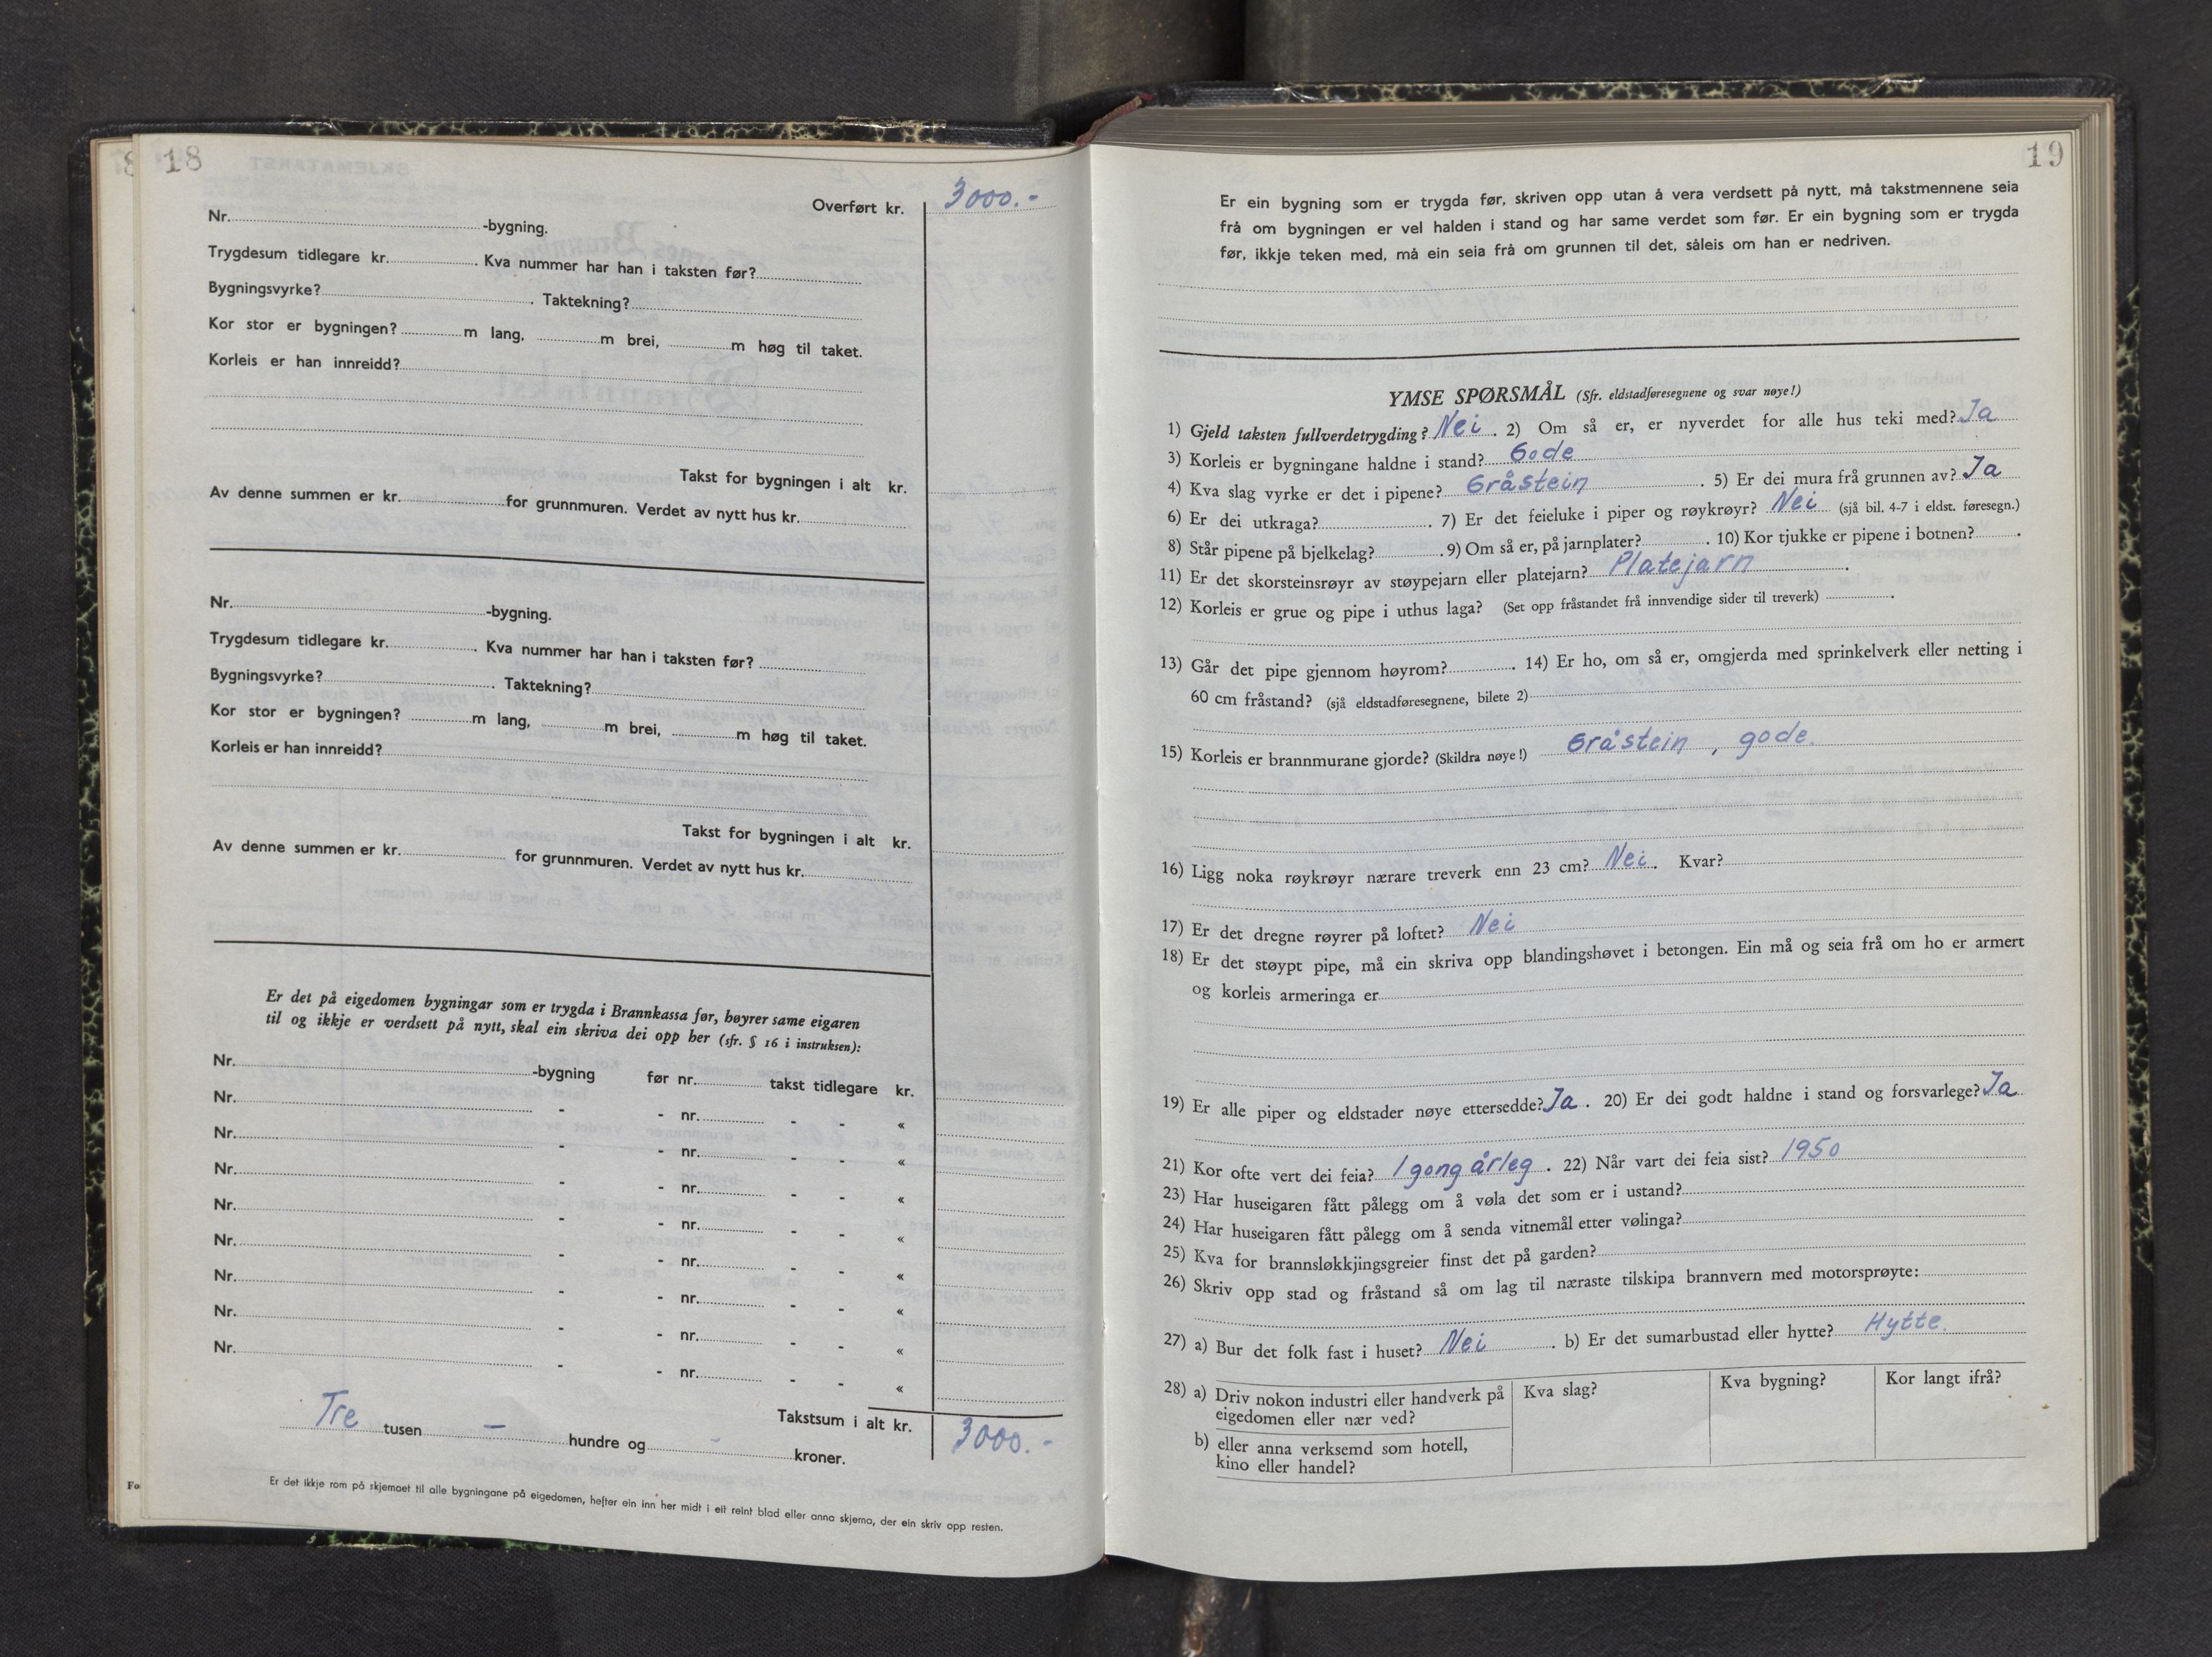 18
Overført kr. 3000.-
Nr. -bygning.
Trygdesum tidlegare kr. . Kva nummer har han i taksten før?
Bygningsvyrke? . Taktekning?
Kor stor er bygningen? m lang, m brei, m høg til taket.
Korleis er han innreidd?
Takst for bygningen i alt kr.
Av denne summen er kr. for grunnmuren. Verdet av nytt hus kr.
Nr. -bygning.
Trygdesum tidlegare kr. . Kva nummer har han i taksten før?
Bygningsvyrke? . Taktekning?
Kor stor er bygningen? m lang, m brei, m høg til taket.
Korleis er han innreidd?
Takst for bygningen i alt kr.
Av denne summen er kr. for grunnmuren. Verdet av nytt hus kr.
Er det på eigedomen bygningar som er trygda i Brannkassa før, høyrer same eigaren
til og ikkje er verdsett på nytt, skal ein skriva dei opp her (sfr. § 16 i instruksen):
Nr. -bygning før nr. takst tidlegare kr.
Nr. - - nr. - - «
Nr. - - nr. - - «
Nr. - - nr. - - «
Nr. - - nr. - - «
Nr. - - nr. - - «
Nr. - - nr. - - «
Nr. - - nr. - - «
Nr. - - nr. - - «
Takstsum i alt kr. 3000.-
Tre tusen — hundre og - kroner.
Er det ikkje rom på skjemaet til alle bygningane på eigedomen, hefter ein inn her midt i eit reint blad eller anna skjema, der ein skriv opp resten.
19
Er ein bygning som er trygda før, skriven opp utan å vera verdsett på nytt, må takstmennene seia
frå om bygningen er vel halden i stand og har same verdet som før. Er ein bygning som er trygda
før, ikkje teken med, må ein seia frå om grunnen til det, såleis om han er nedriven.
YMSE SPØRSMÅL (Sfr. eldstadføresegnene og svar nøye!)
1) Gjeld taksten fullverdetrygding? Nei . 2) Om så er, er nyverdet for alle hus teki med? Ja
3) Korleis er bygningane haldne i stand? Gode
4) Kva slag vyrke er det i pipene? Gråstein . 5) Er dei mura frå grunnen av? Ja
6) Er dei utkraga? . 7) Er det feieluke i piper og røykrøyr? Nei (sjå bil. 4-7 i eldst. føresegn.)
8) Står pipene på bjelkelag? . 9) Om så er, på jarnplater? . 10) Kor tjukke er pipene i botnen? .
11) Er det skorsteinsrøyr av støypejarn eller platejarn? Platejarn .
12) Korleis er grue og pipe i uthus laga? (Set opp fråstandet frå innvendige sider til treverk) .
13) Går det pipe gjennom høyrom? . 14) Er ho, om så er, omgjerda med sprinkelverk eller netting i
60 cm fråstand? (sjå eldstadføresegnene, bilete 2)
15) Korleis er brannmurane gjorde? (Skildra nøye!) Gråstein, gode.
16) Ligg noka røykrøyr nærare treverk enn 23 cm? Nei. Kvar?
17) Er det dregne røyrer på loftet? Nei
18) Er det støypt pipe, må ein skriva opp blandingshøvet i betongen. Ein må og seia frå om ho er armert
og korleis armeringa er
19) Er alle piper og eldstader nøye ettersedde? Ja . 20) Er dei godt haldne i stand og forsvarlege? Ja
21) Kor ofte vert dei feia? 1 gong årleg . 22) Når vart dei feia sist? 1950
23) Har huseigaren fått pålegg om å vøla det som er i ustand?
24) Har huseigaren fått pålegg om å senda vitnemål etter vølinga?
25) Kva for brannsløkkjingsgreier finst det på garden?
26) Skriv opp stad og fråstand så om lag til næraste tilskipa brannvern med motorsprøyte:
27) a) Bur det folk fast i huset? Nei . b) Er det sumarbustad eller hytte? Hytte.
28) a) Driv nokon industri eller handverk på
eigedomen eller nær ved?
Kva slag?
Kva bygning?
Kor langt ifrå?
b) eller anna verksemd som hotell,
kino eller handel?